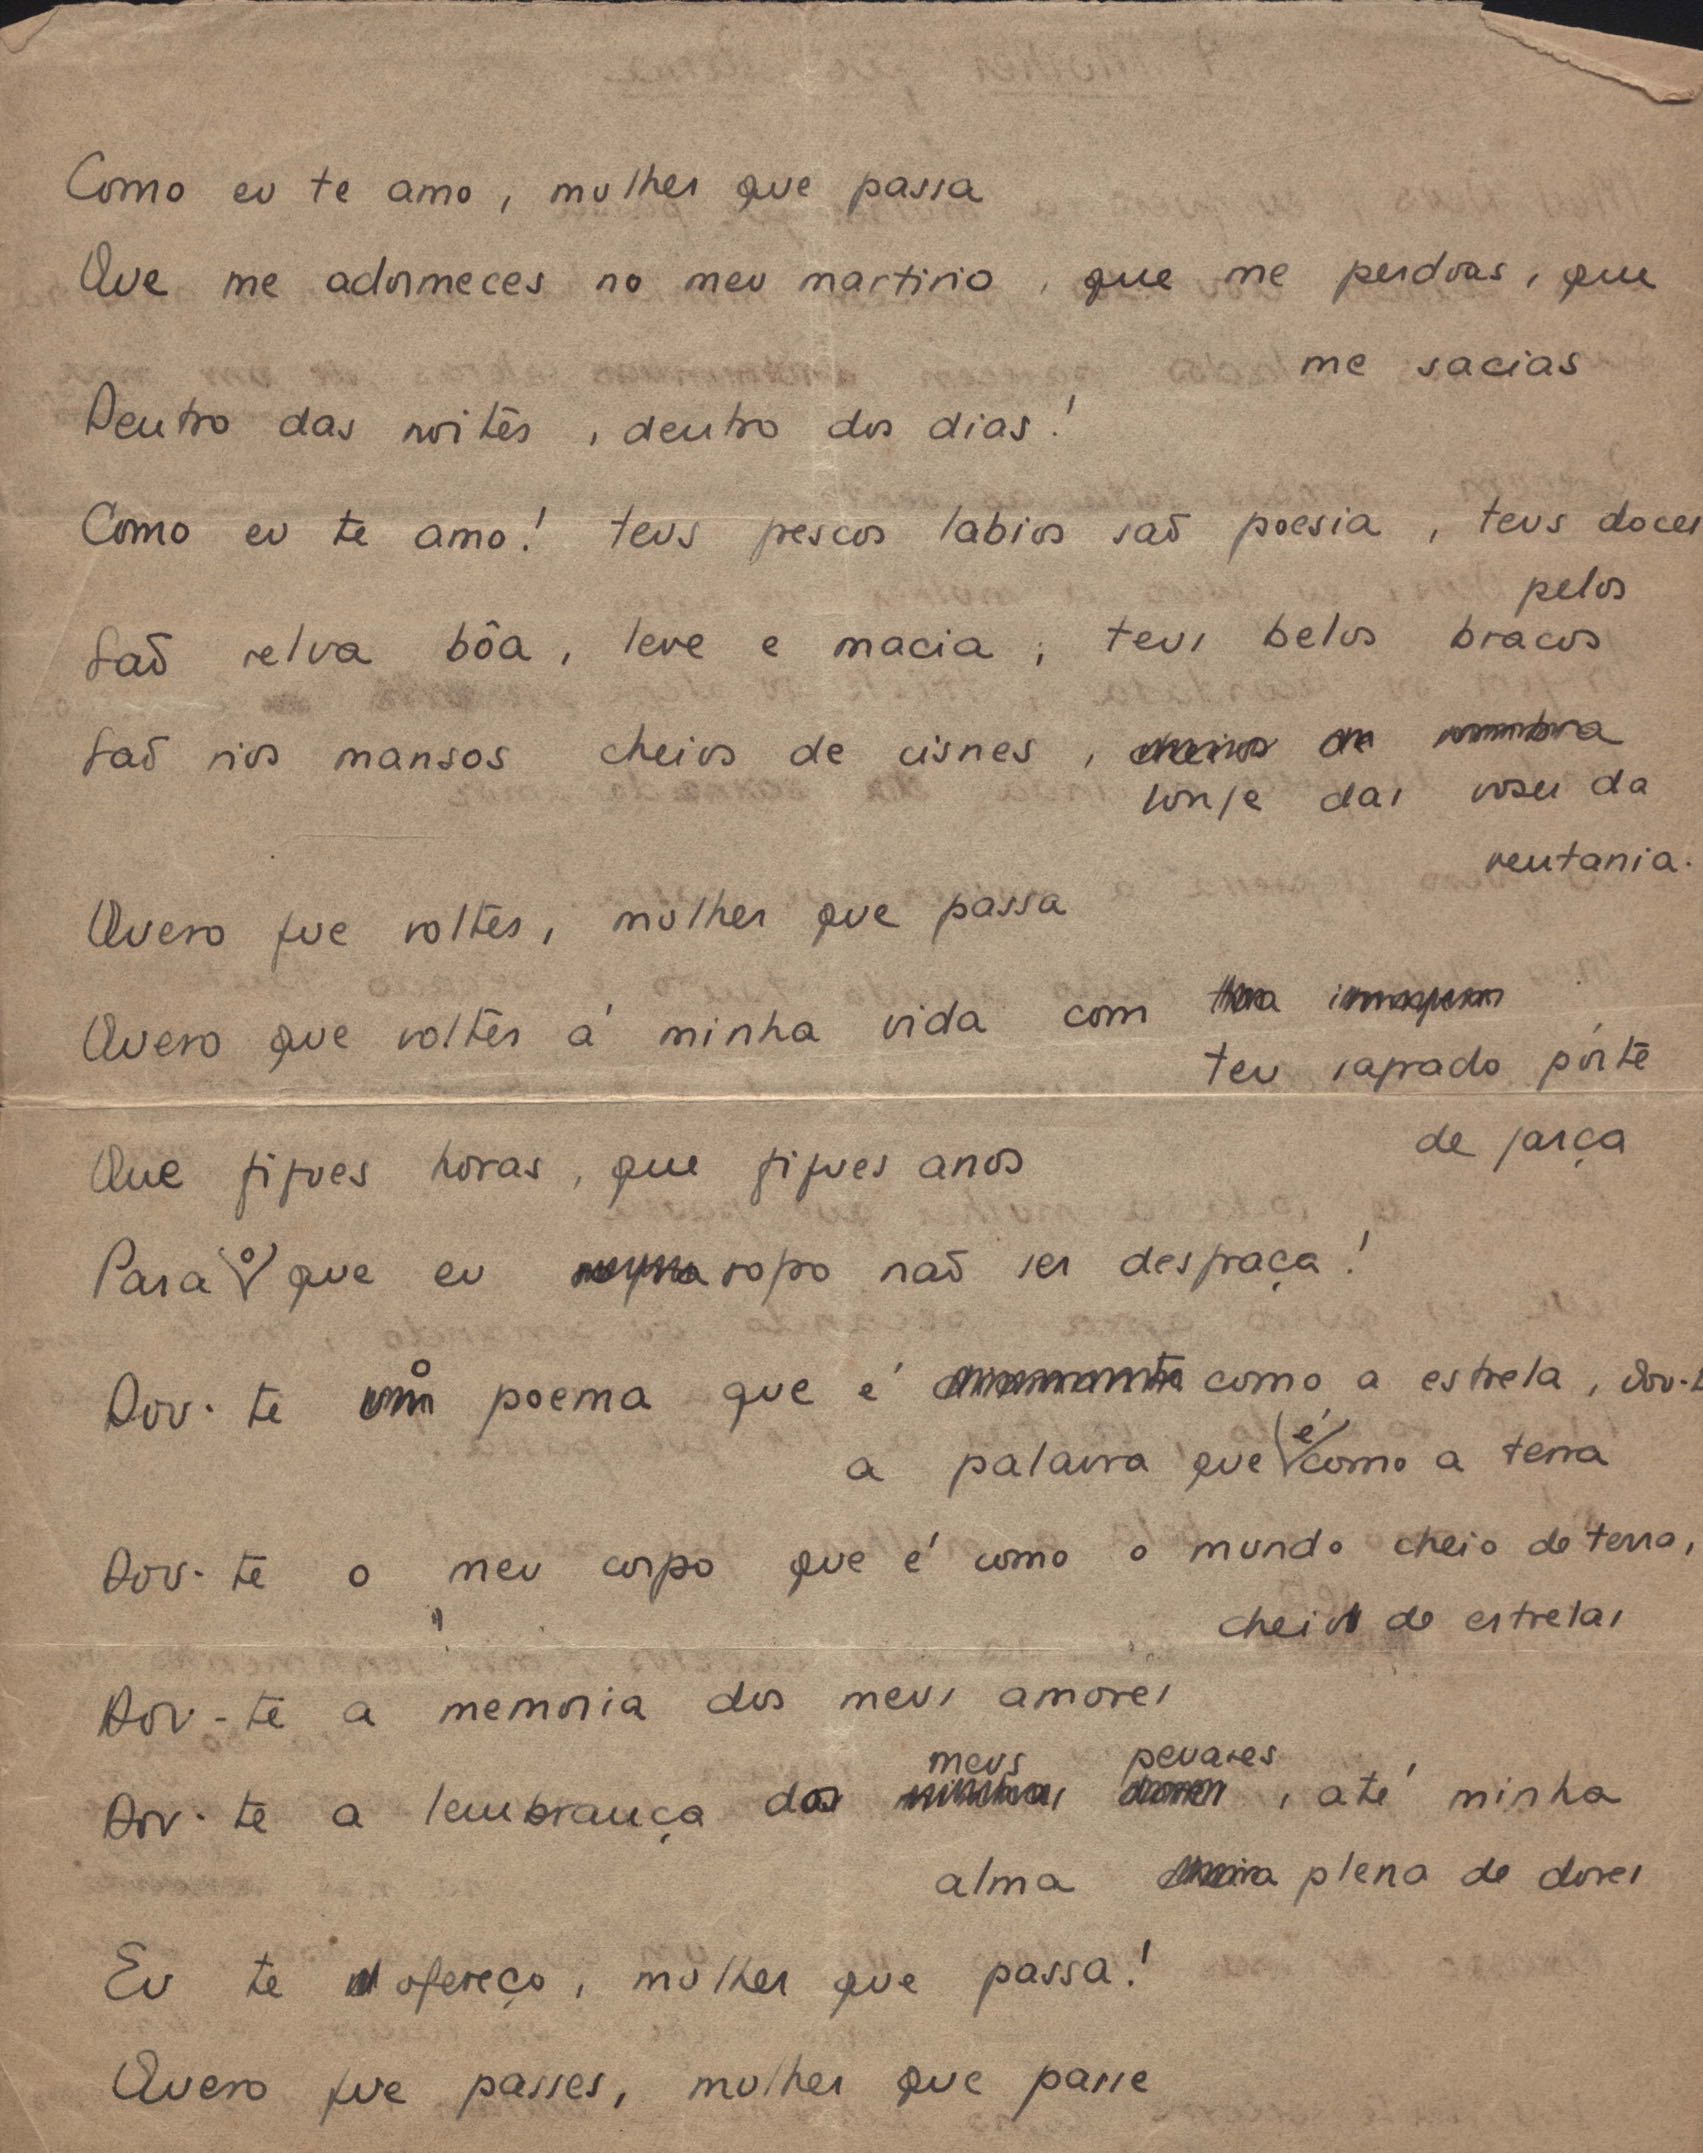 Como eu te amo, mulher que passa
Que me adormeces no meu martirio, que me perdoas, que
me sacias
Dentro das noites, dentro dos dias!
Como eu te amo! teus frescos labios saõ poesia, teus doces
pelos
Saõ relva bôa, leve e macia, teus belos bracos
Saõ rios mansos cheios de cisnes, cheios de sombra
longe das vozes da
ventania.
Quero que voltes, mulher que passa
Quero que voltes á minha vida com tua imagem
teu sagrado pórte
de garça
Que fiques horas, que fiques anos
Para o que eu rogo naõ ser desgraça!
Dou-te o poema que é como a estrela, dou-t
a palavra que é como a terra
Dou-te o meu corpo que é como o mundo cheio de terra,
cheio de estrelas
Dou-te a memoria dos meus amores
meus pezares
Dou-te a lembrança dos minhas dores, até minha
alma cheia plena de dores
Eu te ofereço, mulher que passa!
Quero que passes, mulher que passe